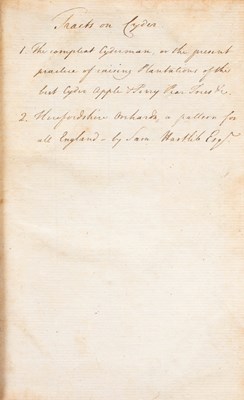 Tracts on Cyder
1. The compleat Cyderman, or the present
practice of raising Plantations of the
best Cyder Apple & Perry Pear Trees &c.
2. Herefordshire Orchards, a pattern for
all England - by Sam Hartlib Esqr.